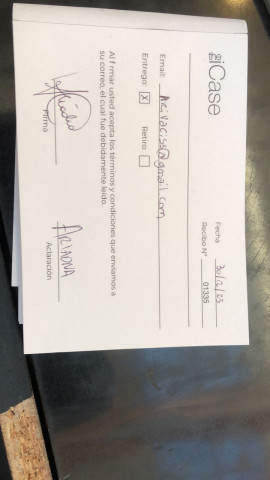 iCase
Fecha 30/12/25
Recibo N° 01335
Email: Arivaciss@gmail.com
Entrego: X Retiro:
Al firmar usted acepta los términos y condiciones que enviamos a
su correo, el cual fue debidamente leído.
Firma
ARIADNA
Aclaración